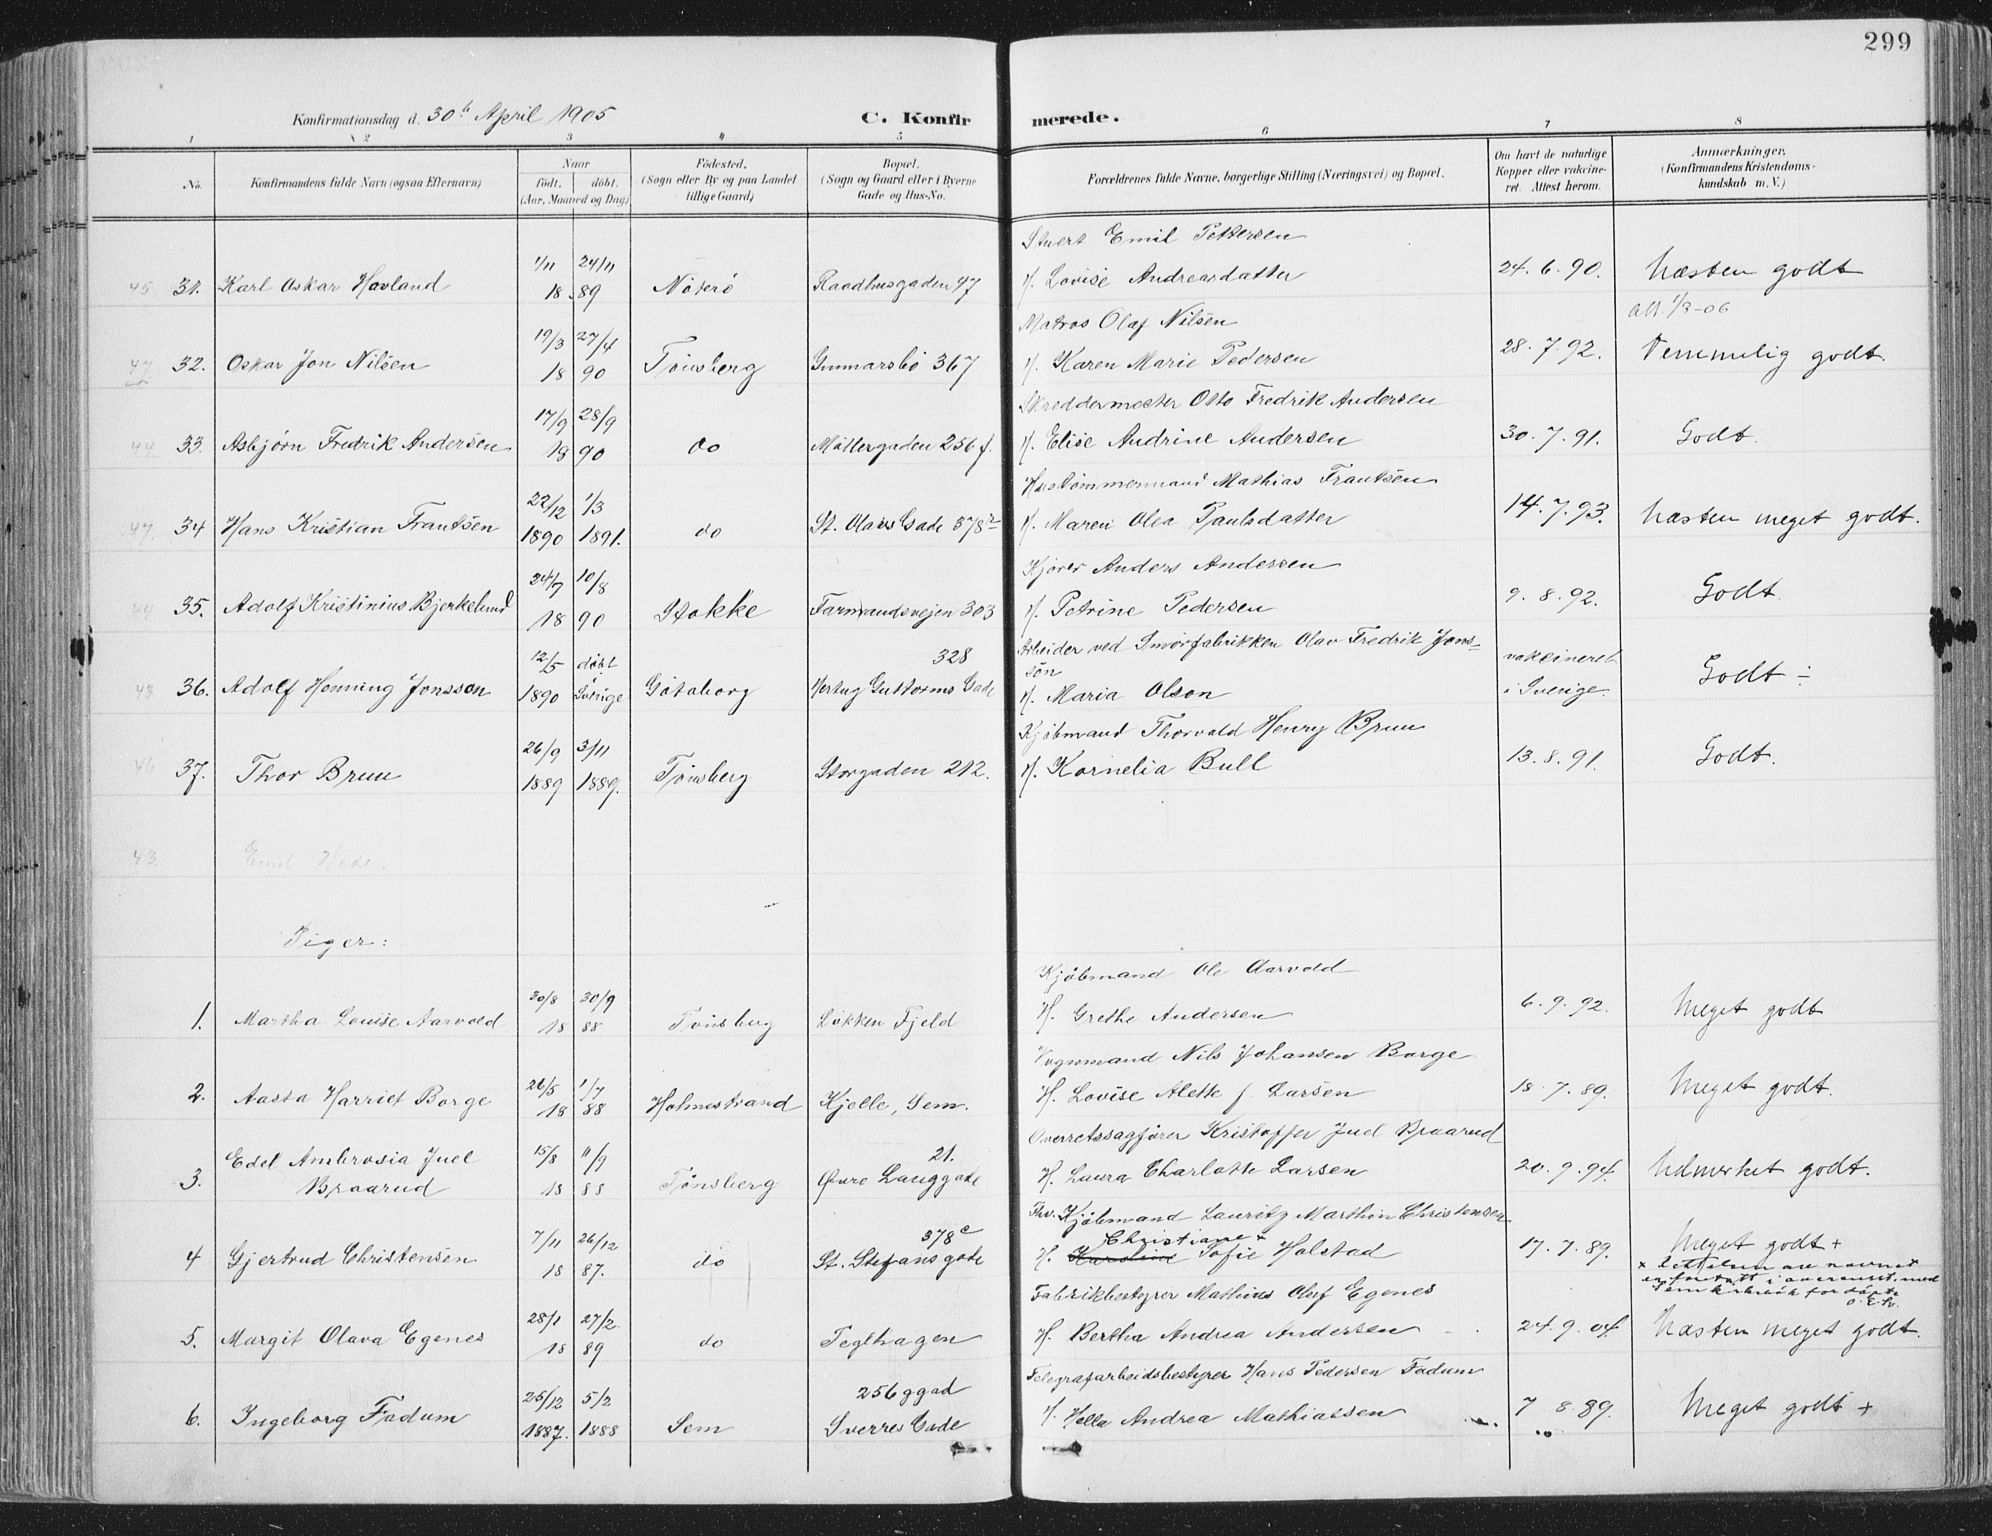 299
Konfirmationsdag d. 30te April 1905
C. Konfirmerede.
1 2 3 4 5 6 7 8
No.
Konfirmandens fulde Navn (ogsaa Efternavn)
Naar
födt. döbt.
(Aar, Maaned og Dag)
Födested.
(Sogn eller By og paa Landet
tillige Gaard)
Bopæl.
(Sogn og Gaard eller i Byerne
Gade og Hus-No.
Forældrenes fulde Navne, borgerlige Stilling (Næringsvei) og Bopæl.
Om havt de naturlige
Kopper eller vakcine-
ret. Attest herom.
Anmærkninger.
(Konfirmandens Kristendoms-
kundskab m. V.)
Stuert Emil Pettersen
1/11 24/11
45 31. Karl Oskar Hovland 18 89 Nöterö Raadhusgaden 97 H. Lovise Andreasdatter 24. 6. 90. Næsten godt
att 1/3-06
Matros Olaf Nilsen
19/3 27/4
32. Oskar Jon Nilsen 18 90 Tönsberg Gunnarsbö 367 H. Karen Marie Pedersen 28. 7. 92. Temmelig godt.
Skreddermester Otto Fredrik Andersen
17/9 28/9
44 33. Asbjørn Fredrik Andersen 18 90 do Möllergaden 256 f. H. Elise Andrine Andersen 30. 7. 91. Godt.
Hustömmermand Mathias Frantsen
22/12 1/3
47. 34 Hans Kristian Frantsen 1890 1891. do St. Olavs Gade 378 H. Maren Olea Paulsdatter 14. 7. 93. Næsten meget godt.
Kjörer Anders Andersen
24/7 10/8
44 35. Adolf Kristinius Bjerkelund 18 90 Stokke Farmandsvejen 303 H. Petrine Pedersen 9. 8. 92. Godt.
Arbeider ved Smörfabrikken Olav Fredrik Jons-
sön
12/5 döbt 328
48 36. Adolf Henning Jonsson 1890 Sverige Götaborg Hertug Guttorms Gade H. Maria Olson vakcineret i Sverige. Godt ÷
Kjöbmand Thorvald Henry Bruu
26/9 3/11
46 37. Thor Bruu 1889 1889. Tjønsberg Storgaden 212. H. Kornelia Bull 13. 8. 91. Godt.
43 Emil
Piger:
Kjöbmand Ole Aarvold
30/8 30/9
1. Martha Louise Aarvold 18 88 Tönsberg Lökken Fjeld H. Grethe Andersen 6. 9. 92. Meget godt
Vognmand Nils Johansen Borge
26/5 1/7
2. Aasta Harriet Borge 18 88 Holmestrand Kjelle, Sem. H. Lovise Alette f. Larsen 18. 7. 89. Meget godt.
Overretssagfører Kristoffer Juel Braarud
15/8 11/9 21.
3. Edel Ambrosia Juel Braarud 18 88 Tönsberg Øvre Langgade H. Laura Charlotte Larsen 20. 9. 94. Udmerket godt.
Fhv. Kjöbmand Lauritz Marthin Christensen
7/11 26/12 378 c Christiane +
4 Gjertrud Christensen 18 87. do St. Stefansgade H. Karoline Sofie Holstad 17. 7. 89. Meget godt +
Fabrikbestyrer Mathias Olaf Egenes
28/1 27/2.
5. Margit Olava Egenes 18 89 do Teglhagen H. Bertha Andrea Andersen 24. 9. 04. Næsten meget godt.
Telegrafarbeidsbestyrer Hans Pedersen Fadum
25/12 5/2 256 ggad
6. Ingeborg Fadum 1887. 1888 Sem Sverres Gade H. Hella Andrea Mathiassen 7 8. 89. Meget godt +